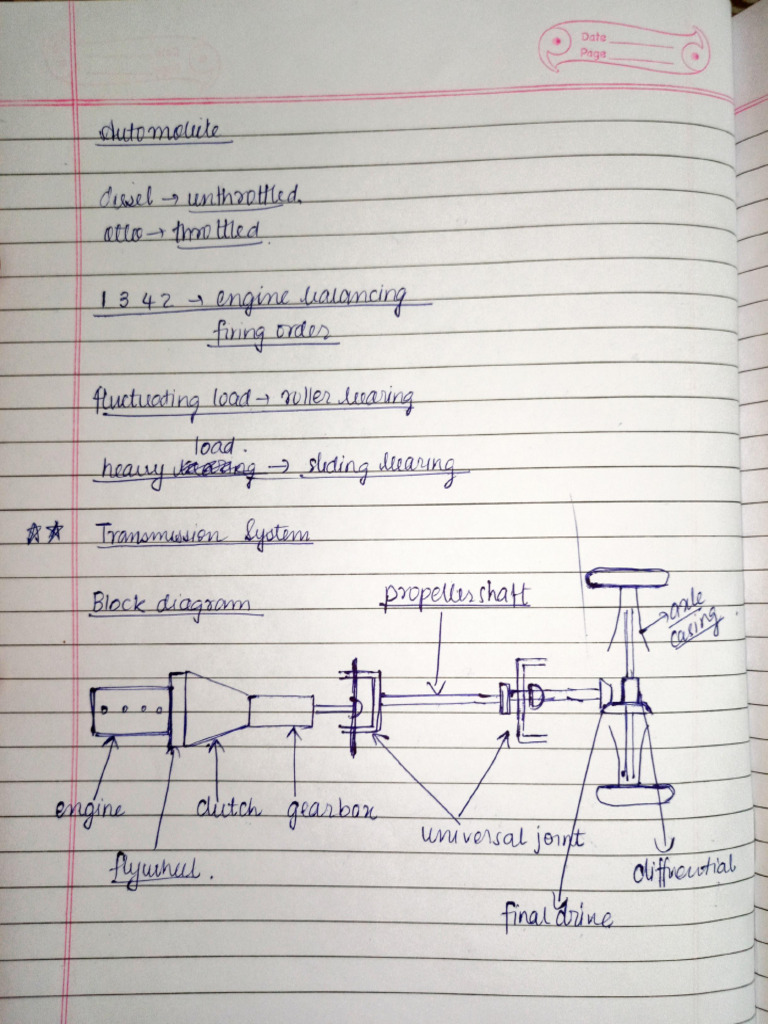 Date
Page
Automobile
diesel → unthrottled.
otto → throttled.
1 3 4 2 → engine balancing
firing order
fluctuating load → roller bearing
load.
heavy → sliding bearing
☆☆ Transmission System
Block diagram
propeller shaft
axle
casing
engine
clutch
gearbox
universal joint
flywheel.
diffrential
final drive